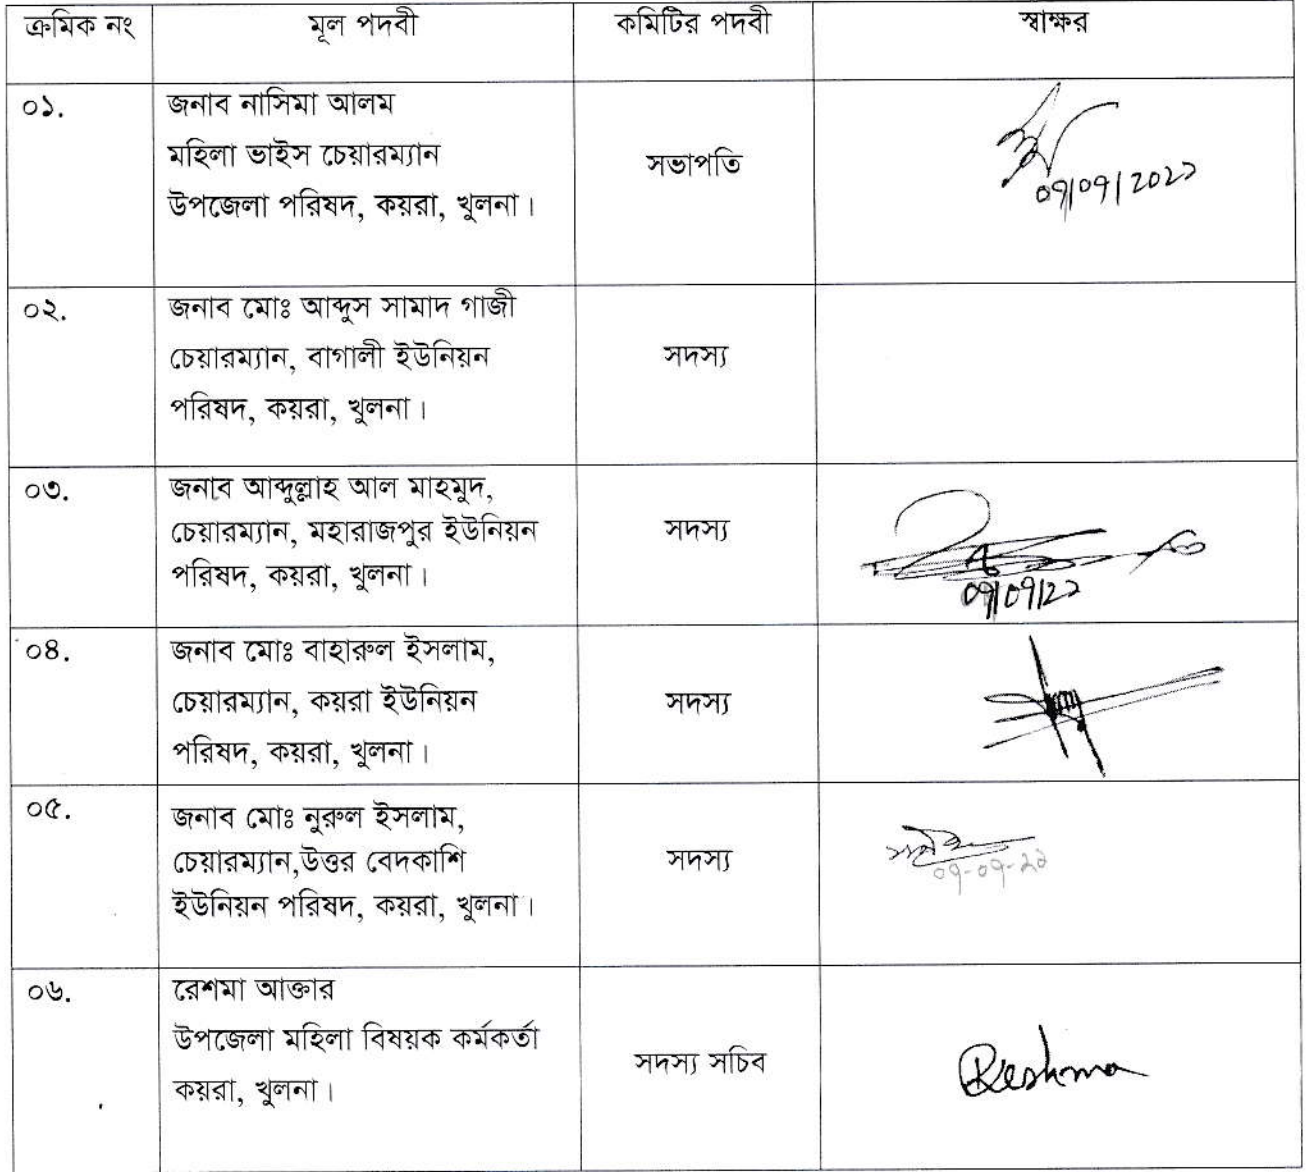 ক্রমিক নং মূল পদবী কমিটির পদবী স্বাক্ষর
০১. জনাব নাসিমা আলম
মহিলা ভাইস চেয়ারম্যান
উপজেলা পরিষদ, কয়রা, খুলনা।
সভাপতি
০২. জনাব মোঃ আব্দুস সামাদ গাজী
চেয়ারম্যান, বাগালী ইউনিয়ন
পরিষদ, কয়রা, খুলনা।
সদস্য
০৩. জনাব আব্দুল্লাহ আল মাহমুদ,
চেয়ারম্যান, মহারাজপুর ইউনিয়ন
পরিষদ, কয়রা, খুলনা।
সদস্য
০৪. জনাব মোঃ বাহারুল ইসলাম,
চেয়ারম্যান, কয়রা ইউনিয়ন
পরিষদ, কয়রা, খুলনা।
সদস্য
০৫. জনাব মোঃ নুরুল ইসলাম,
চেয়ারম্যান,উত্তর বেদকাশি
ইউনিয়ন পরিষদ, কয়রা, খুলনা।
সদস্য
০৬. রেশমা আক্তার
উপজেলা মহিলা বিষয়ক কর্মকর্তা
কয়রা, খুলনা।
সদস্য সচিব
Reshma